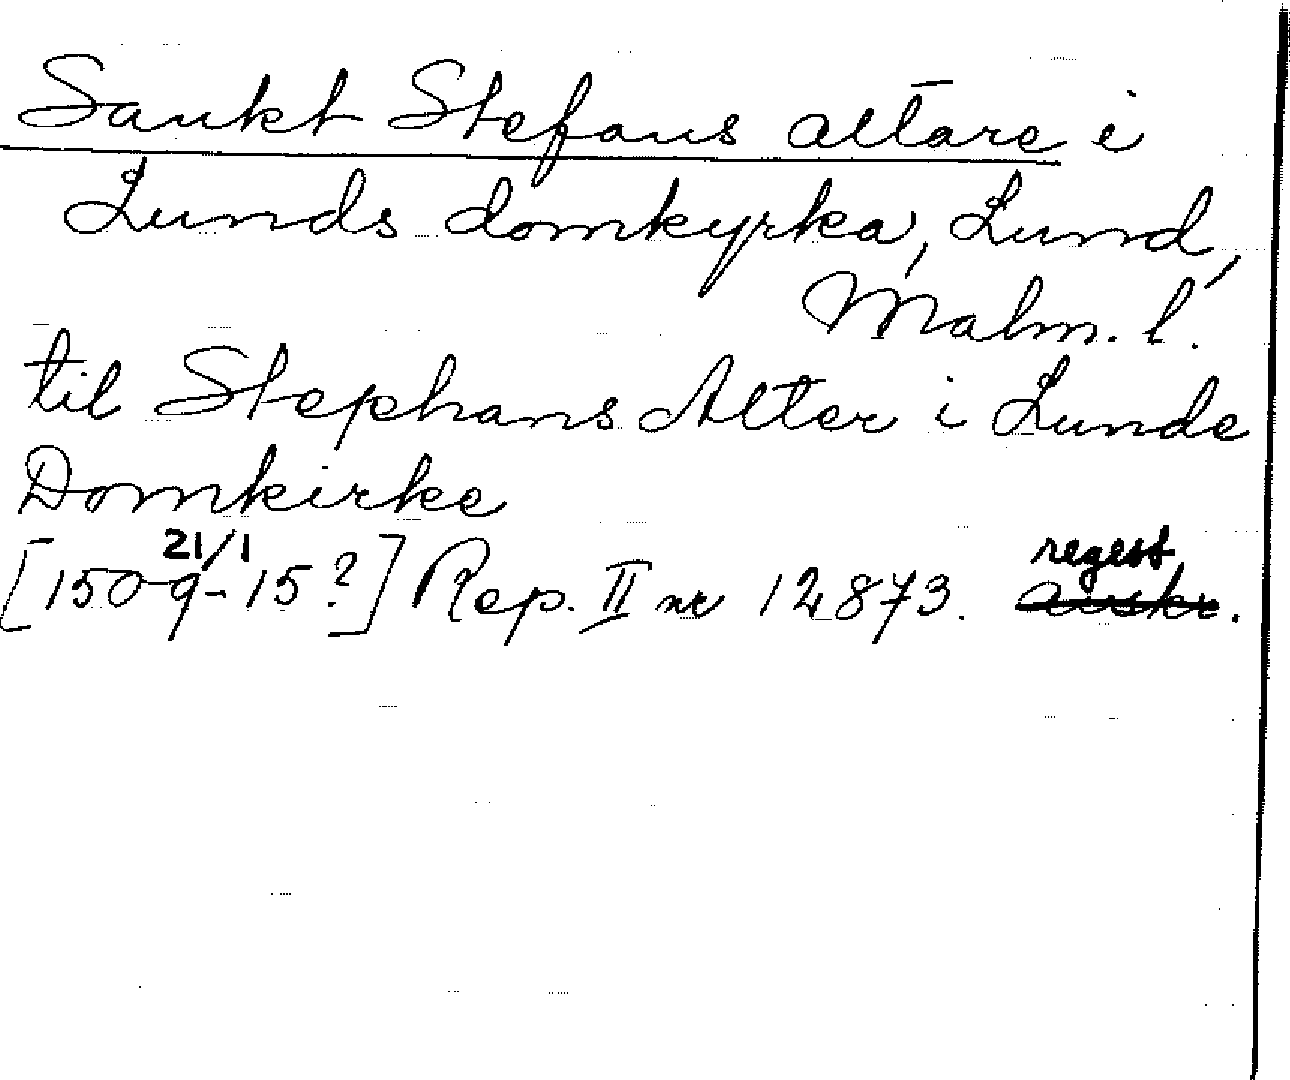 Sankt Stefans altare i
Lunds domkyrka, Lund,
Malm. l.
til Stephans Alter i Lunde
Domkirke
21/1 regest
[1509-15?] Rep. II nr 12873. avskr.